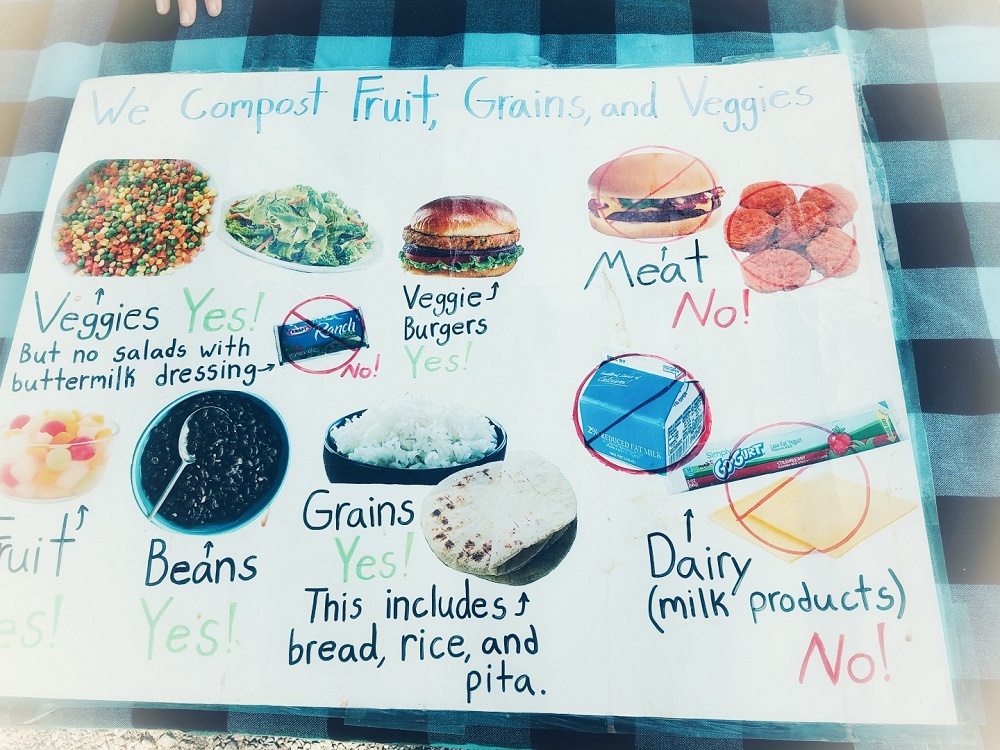 We Compost Fruit, Grains, and Veggies
Veggies Yes!
But no salads with
buttermilk dressing
KRAFT
Ranch
No!
Veggie
Burgers
Yes!
Meat
No!
Fruit
es!
Beans
Yes!
Grains
Yes!
This includes
bread, rice, and
pita.
Calcium
2% REDUCED FAT MILK
Simply
GOGURT
Low Fat Yogurt
STRAWBERRY
Dairy
(milk products)
No!